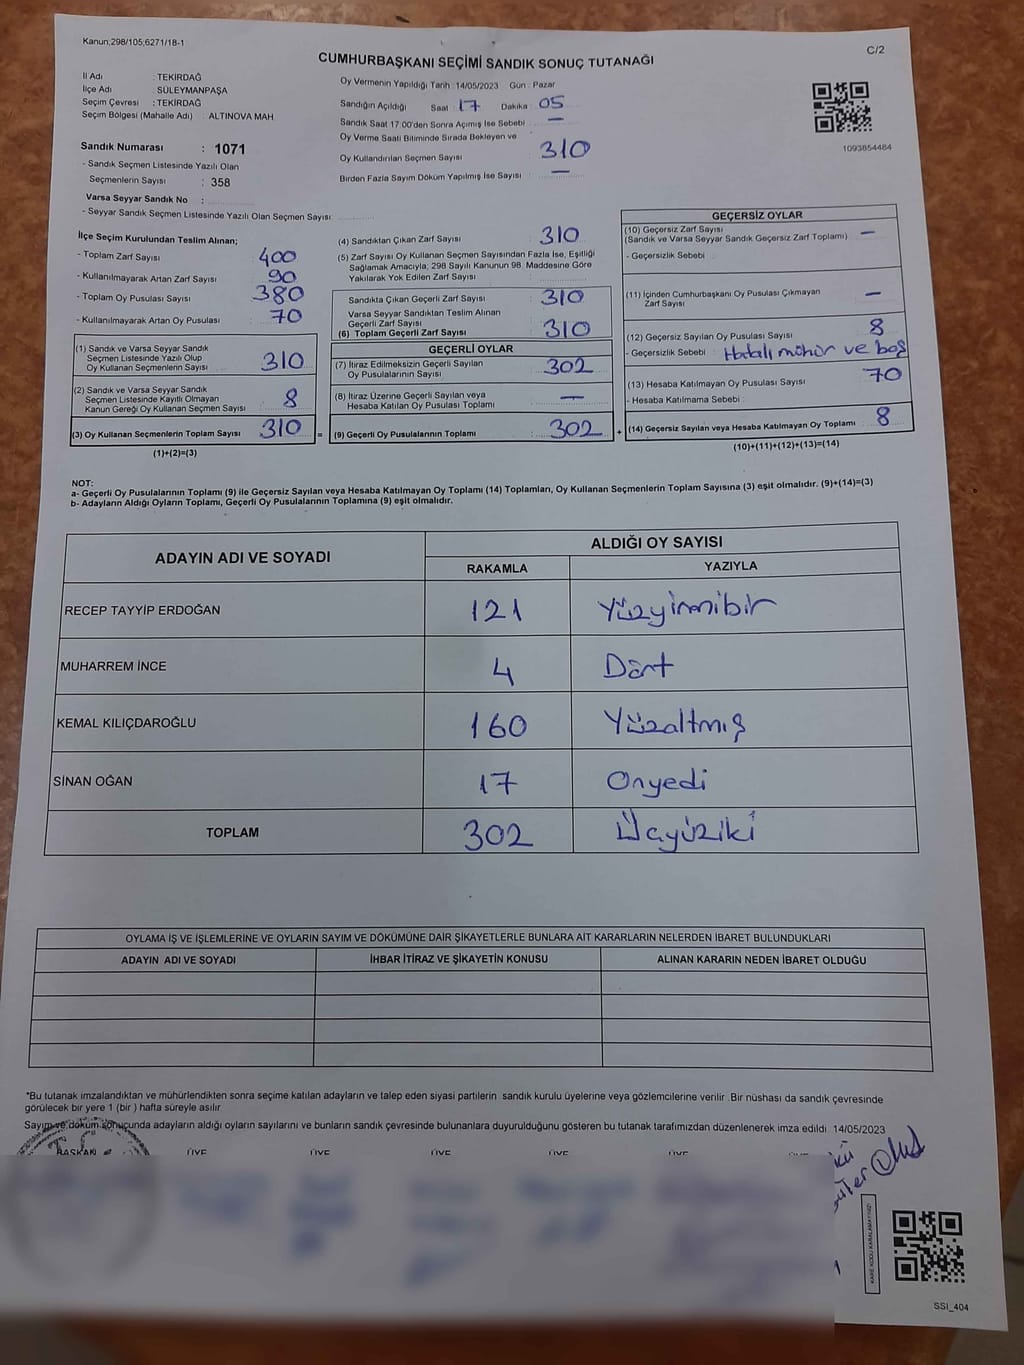 Kanun;298/105,6271/18-1
C/2
CUMHURBAŞKANI SEÇİMİ SANDIK SONUÇ TUTANAĞI
İl Adı : TEKİRDAĞ
İlçe Adı : SÜLEYMANPAŞA
Seçim Çevresi : TEKİRDAĞ
Seçim Bölgesi (Mahalle Adı) : ALTINOVA MAH.
Sandık Numarası : 1071
- Sandık Seçmen Listesinde Yazılı Olan
Seçmenlerin Sayısı : 358
Varsa Seyyar Sandık No :
- Seyyar Sandık Seçmen Listesinde Yazılı Olan Seçmen Sayısı:
Oy Vermenin Yapıldığı Tarih : 14/05/2023 Gün : Pazar
Sandığın Açıldığı Saat : 17 Dakika : 05
Sandık Saat 17:00'den Sonra Açımış İse Sebebi : —
Oy Verme Saati Bitiminde Sırada Bekleyen ve
Oy Kullandırılan Seçmen Sayısı : 310
Birden Fazla Sayım Döküm Yapılmış İse Sayısı : —
1093854484
İlçe Seçim Kurulundan Teslim Alınan;
- Toplam Zarf Sayısı : 400
- Kullanılmayarak Artan Zarf Sayısı : 90
- Toplam Oy Pusulası Sayısı : 380
- Kullanılmayarak Artan Oy Pusulası : 70
(1) Sandık ve Varsa Seyyar Sandık
Seçmen Listesinde Yazılı Olup
Oy Kullanan Seçmenlerin Sayısı : 310
(2) Sandık ve Varsa Seyyar Sandık
Seçmen Listesinde Kayıtlı Olmayan
Kanun Gereği Oy Kullanan Seçmen Sayısı : 8
(3) Oy Kullanan Seçmenlerin Toplam Sayısı : 310 =
(1)+(2)=(3)
(4) Sandıktan Çıkan Zarf Sayısı : 310
(5) Zarf Sayısı Oy Kullanan Seçmen Sayısından Fazla İse, Eşitliği
Sağlamak Amacıyla, 298 Sayılı Kanunun 98. Maddesine Göre
Yakılarak Yok Edilen Zarf Sayısı :
Sandıkta Çıkan Geçerli Zarf Sayısı : 310
Varsa Seyyar Sandıktan Teslim Alınan
Geçerli Zarf Sayısı
(6) Toplam Geçerli Zarf Sayısı : 310
GEÇERLİ OYLAR
(7) İtiraz Edilmeksizin Geçerli Sayılan
Oy Pusulalarının Sayısı : 302
(8) İtiraz Üzerine Geçerli Sayılan veya
Hesaba Katılan Oy Pusulası Toplamı : —
(9) Geçerli Oy Pusulalarının Toplamı : 302 +
GEÇERSİZ OYLAR
(10) Geçersiz Zarf Sayısı
(Sandık ve Varsa Seyyar Sandık Geçersiz Zarf Toplamı) : —
- Geçersizlik Sebebi :
(11) İçinden Cumhurbaşkanı Oy Pusulası Çıkmayan
Zarf Sayısı : —
(12) Geçersiz Sayılan Oy Pusulası Sayısı : 8
- Geçersizlik Sebebi : Hatalı mühür ve boş
(13) Hesaba Katılmayan Oy Pusulası Sayısı : 70
- Hesaba Katılmama Sebebi :
(14) Geçersiz Sayılan veya Hesaba Katılmayan Oy Toplamı : 8
(10)+(11)+(12)+(13)=(14)
NOT:
a- Geçerli Oy Pusulalarının Toplamı (9) ile Geçersiz Sayılan veya Hesaba Katılmayan Oy Toplamı (14) Toplamları, Oy Kullanan Seçmenlerin Toplam Sayısına (3) eşit olmalıdır. (9)+(14)=(3)
b- Adayların Aldığı Oyların Toplamı, Geçerli Oy Pusulalarının Toplamına (9) eşit olmalıdır.
ADAYIN ADI VE SOYADI
ALDIĞI OY SAYISI
RAKAMLA YAZIYLA
RECEP TAYYİP ERDOĞAN 121 Yüzyirmibir
MUHARREM İNCE 4 Dört
KEMAL KILIÇDAROĞLU 160 Yüzaltmış
SİNAN OĞAN 17 Onyedi
TOPLAM 302 Üçyüziki
OYLAMA İŞ VE İŞLEMLERİNE VE OYLARIN SAYIM VE DÖKÜMÜNE DAİR ŞİKAYETLERLE BUNLARA AİT KARARLARIN NELERDEN İBARET BULUNDUKLARI
ADAYIN ADI VE SOYADI İHBAR İTİRAZ VE ŞİKAYETİN KONUSU ALINAN KARARIN NEDEN İBARET OLDUĞU
*Bu tutanak imzalandıktan ve mühürlendikten sonra seçime katılan adayların ve talep eden siyasi partilerin sandık kurulu üyelerine veya gözlemcilerine verilir. Bir nüshası da sandık çevresinde
görülecek bir yere 1 (bir ) hafta süreyle asılır.
Sayım ve döküm sonucunda adayların aldığı oyların sayıları ve bunların sandık çevresinde bulunanlara duyurulduğunu gösteren bu tutanak tarafımızdan düzenlenerek imza edildi. 14/05/2023
BAŞKAN ÜYE ÜYE ÜYE ÜYE ÜYE
KARE KODU KARALAMAYINIZ!
SSI_404